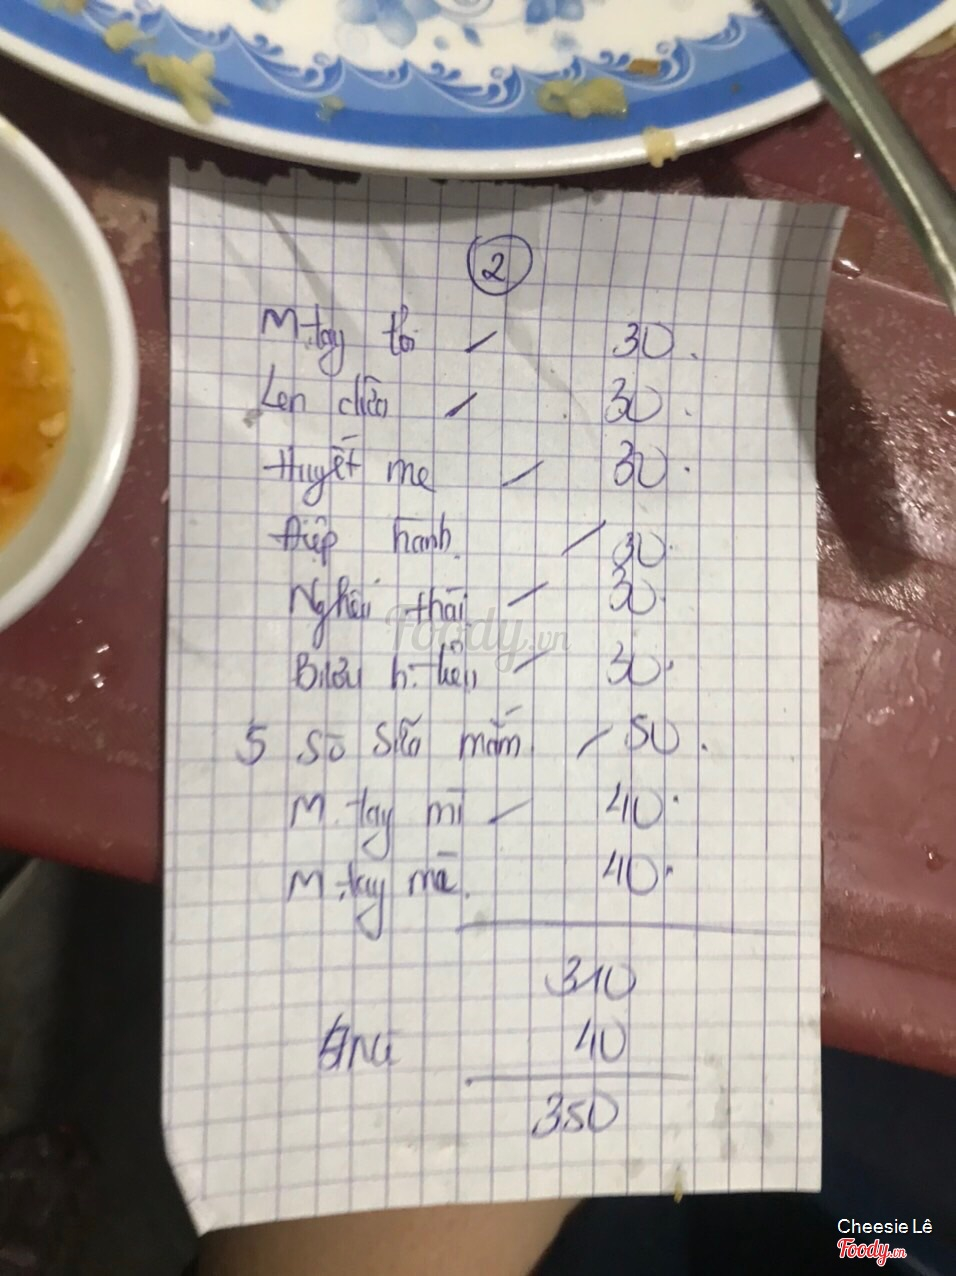 2
M.tay tỏi 30.
Len dừa 30.
Huyết mẹ 30.
Điệp hành 30.
Nghêu thái 30.
h. tiêu 30.
5 Sò Sữa mắm 50.
M. tay mì 40.
M. tay me 40.
310
40
350
Foody.vn
Cheesie Lê
Foody.vn